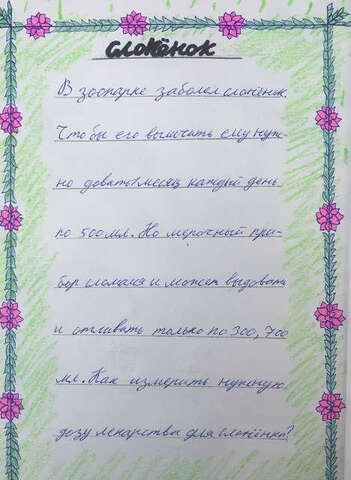 Слонёнок
В зоопарке заболел слонёнок.
Чтобы его вылечить ему нуж-
но довать 1 месяц каждый день
по 500 мл. Но мерочный при-
бор сломался и может выдовать
и отливать только по 300, 700
мл. Как измерить нужную
дозу лекарства для слонёнка?